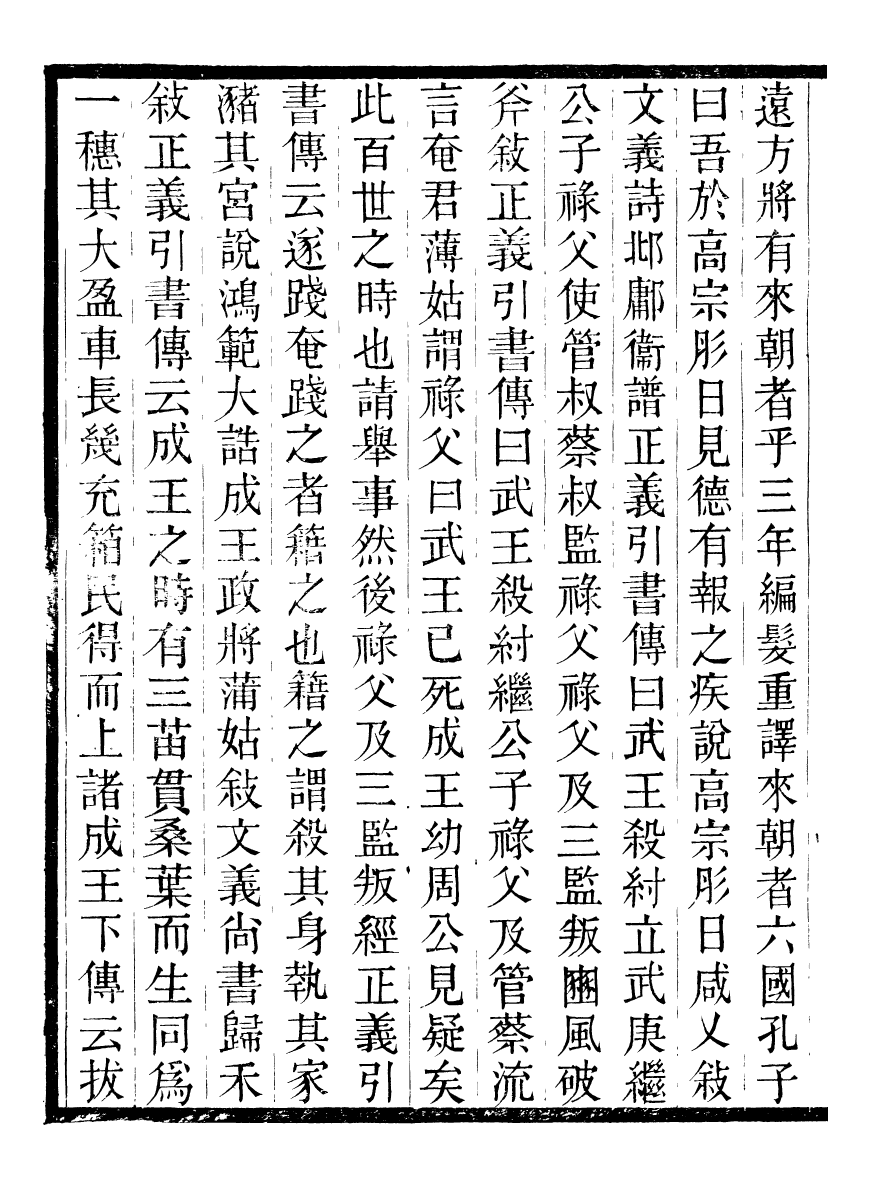 遠方將有來朝者乎三年編髮重譯來朝者六國孔子
曰吾於高宗肜日見德有報之疾說高宗肜日咸乂敍
文義詩邶鄘衞譜正義引書傳曰武王殺紂立武庚繼
公子祿父使管叔蔡叔監祿父祿父及三監叛豳風破
斧敍正義引書傳曰武王殺紂繼公子祿父及管蔡流
言奄君薄姑謂祿父曰武王已死成王幼周公見疑矣
此百世之時也請舉事然後祿父及三監叛經正義引
書傳云遂踐奄踐之者籍之也籍之謂殺其身執其家
瀦其宮說鴻範大誥成王政將蒲姑敍文義尙書歸禾
敍正義引書傳云成王之時有三苗貫桑葉而生同爲
一穗其大盈車長幾充箱民得而上諸成王下傳云拔